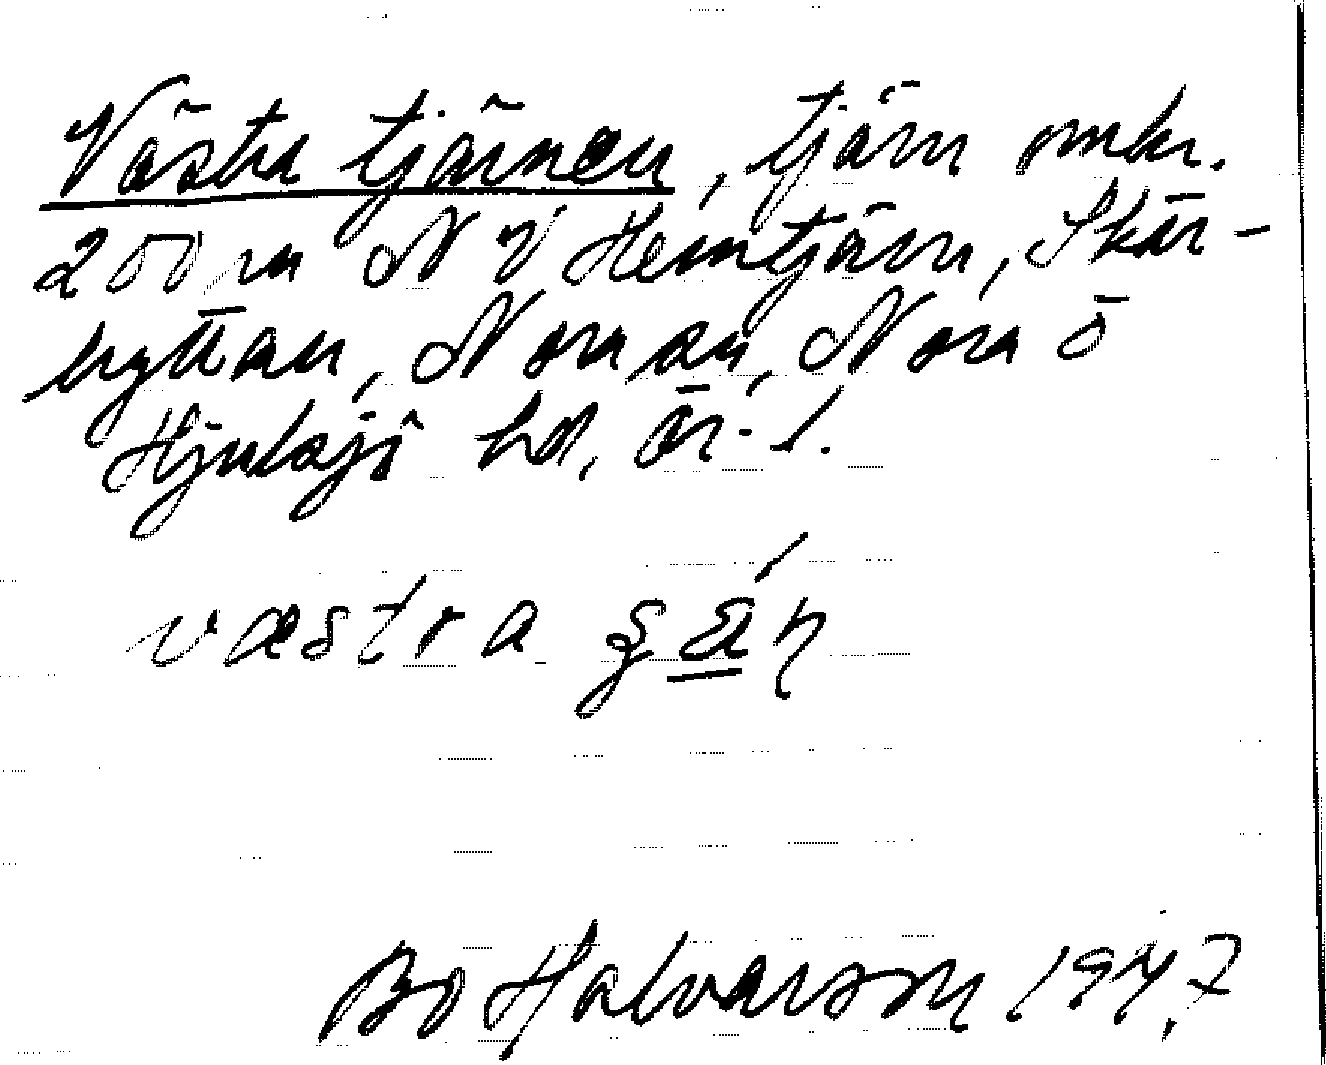 Västra tjärnen, tjärn omkr.
200 m NV Hemtjärn, Skär-
hyttan, Noran, Nora ö
Hjulsjö hd, Ör. l.
västra
Bo Halvarson 1947